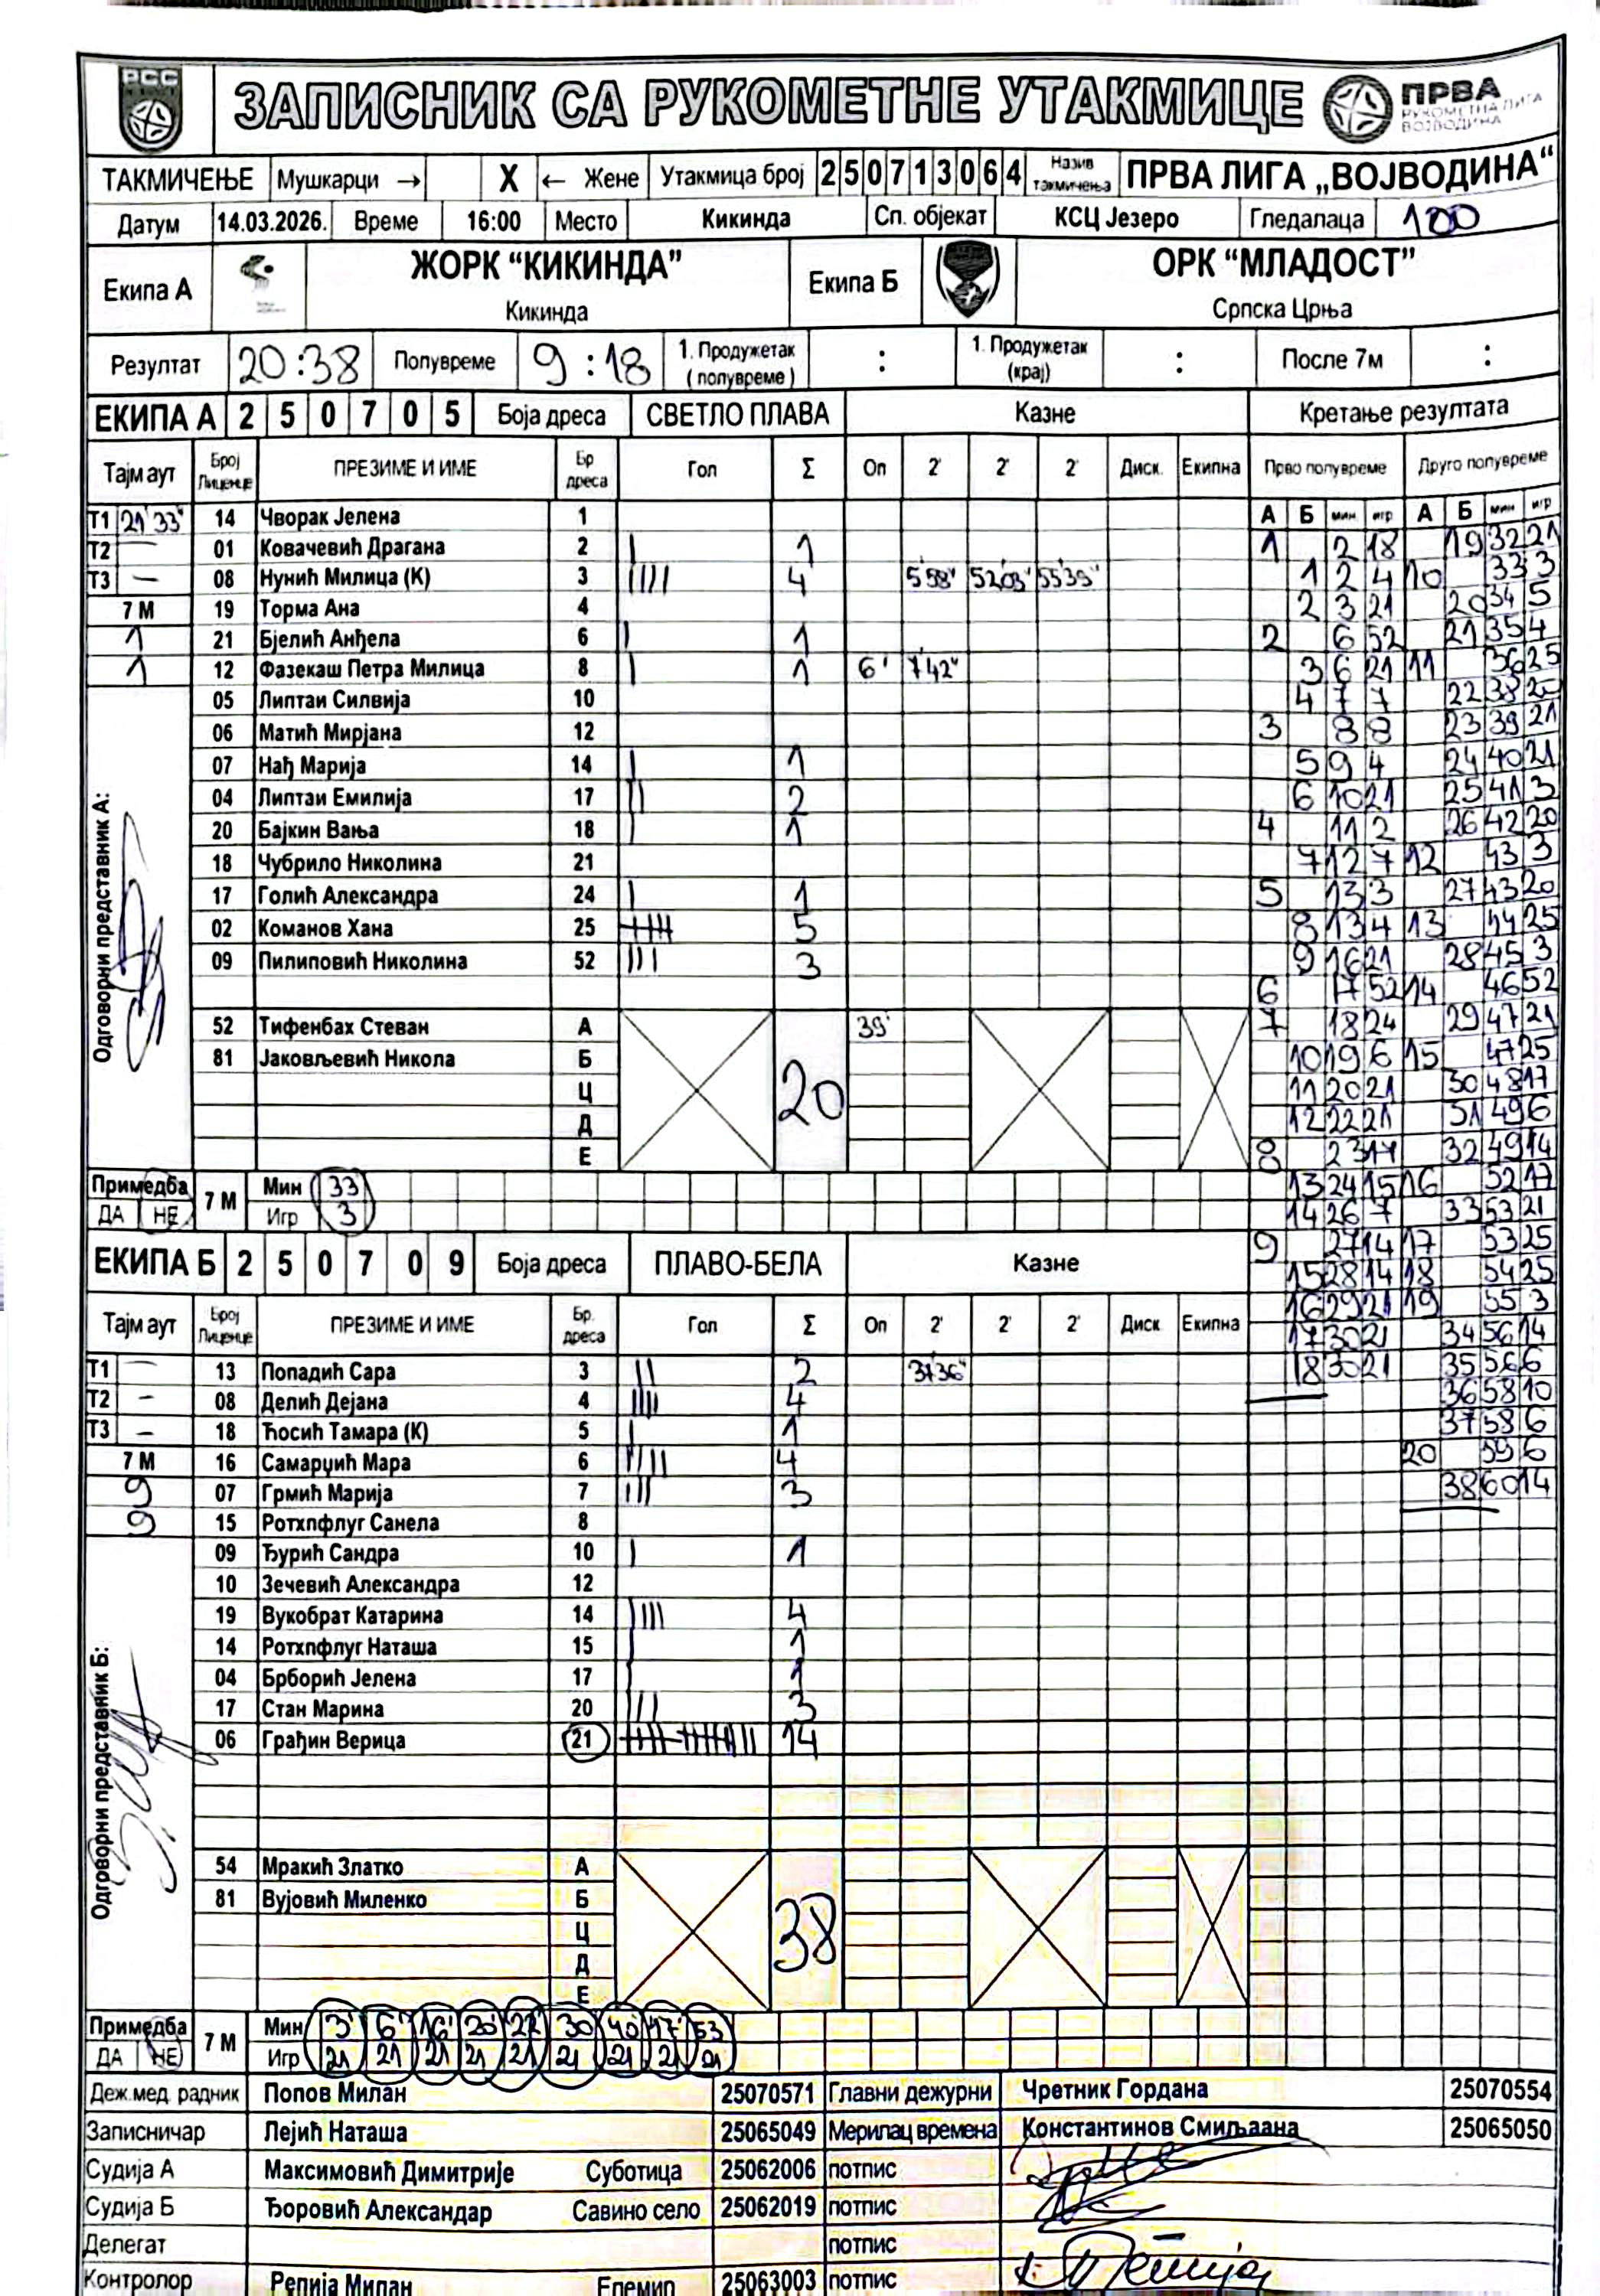 РСС
ЗАПИСНИК СА РУКОМЕТНЕ УТАКМИЦЕ
ПРВА
РУКОМЕТНА ЛИГА
ВОЈВОДИНА
ТАКМИЧЕЊЕ Мушкарци → X ← Жене Утакмица број 250713064 Назив такмичења ПРВА ЛИГА „ВОЈВОДИНА“
Датум 14.03.2026. Време 16:00 Место Кикинда Сп. објекат КСЦ Језеро Гледалаца 100
Екипа А ЖОРК “КИКИНДА” Кикинда Екипа Б ОРК “МЛАДОСТ” Српска Црња
Резултат 20:38 Полувреме 9:18 1. Продужетак (полувреме) : 1. Продужетак (крај) : После 7м :
ЕКИПА А 2 5 0 7 0 5 Боја дреса СВЕТЛО ПЛАВА Казне Кретање резултата
Тајм аут Број Лиценце ПРЕЗИМЕ И ИМЕ Бр дреса Гол Σ Оп 2' 2' 2' Диск. Екипна Прво полувреме Друго полувреме
А Б мин игр А Б мин игр
Т1 21'33" 14 Чворак Јелена 1
Т2 — 01 Ковачевић Драгана 2 | 1
Т3 — 08 Нунић Милица (К) 3 |||| 4 5'58" 52'03" 55'35"
7 М 19 Торма Ана 4
1 21 Бјелић Анђела 6 | 1
1 12 Фазекаш Петра Милица 8 | 1 6' 7'42"
05 Липтаи Силвија 10
06 Матић Мирјана 12
07 Нађ Марија 14 | 1
04 Липтаи Емилија 17 || 2
20 Бајкин Вања 18 | 1
18 Чубрило Николина 21
17 Голић Александра 24 | 1
02 Команов Хана 25 5
09 Пилиповић Николина 52 ||| 3
52 Тифенбах Стеван А 39'
81 Јаковљевић Никола Б
Ц
20
Д
Е
Одговорни представник А:
Примедба ДА НЕ 7 М Мин 33
Игр 3
ЕКИПА Б 2 5 0 7 0 9 Боја дреса ПЛАВО-БЕЛА Казне
Тајм аут Број Лиценце ПРЕЗИМЕ И ИМЕ Бр. дреса Гол Σ Оп 2' 2' 2' Диск Екипна
Т1 — 13 Попадић Сара 3 || 2 31'36"
Т2 — 08 Делић Дејана 4 |||| 4
Т3 — 18 Ћосић Тамара (К) 5 | 1
7 М 16 Самарџић Мара 6 |||| 4
9 07 Грмић Марија 7 ||| 3
9 15 Ротхпфлуг Санела 8
09 Ђурић Сандра 10 | 1
10 Зечевић Александра 12
19 Вукобрат Катарина 14 |||| 4
14 Ротхпфлуг Наташа 15 | 1
04 Брборић Јелена 17 | 1
17 Стан Марина 20 ||| 3
06 Грађин Верица 21 14
54 Мракић Златко А
81 Вујовић Миленко Б
Ц
38
Д
Е
Одговорни представник Б:
Примедба ДА НЕ 7 М Мин 3' 6' 16' 20' 22' 30 40 47' 53
Игр 21 21 21 21 21 21 21 21 21
1 2 18
1 2 4
2 3 21
2 6 52
3 6 21
4 7 7
3 8 8
5 9 4
6 10 21
4 11 2
7 12 7
5 13 3
8 13 4
9 16 21
6 17 52
7 18 24
10 19 6
11 20 21
12 22 21
8 23 17
13 24 15
14 26 7
9 27 14
15 28 14
16 29 21
17 30 21
18 30 21
19 32 21
10 33 3
20 34 5
21 35 4
11 36 25
22 38 20
23 39 21
24 40 21
25 41 3
26 42 20
12 43 3
27 43 20
13 44 25
28 45 3
14 46 52
29 47 21
15 47 25
30 48 17
31 49 6
32 49 14
16 52 17
33 53 21
17 53 25
18 54 25
19 55 3
34 56 14
35 56 6
36 58 10
37 58 6
20 59 6
38 60 14
Деж.мед. радник Попов Милан 25070571 Главни дежурни Чретник Гордана 25070554
Записничар Лејић Наташа 25065049 Мерилац времена Константинов Смиљаана 25065050
Судија А Максимовић Димитрије Суботица 25062006 потпис
Судија Б Ђоровић Александар Савино село 25062019 потпис
Делегат потпис
Контролор Репија Милан Елемир 25063003 потпис